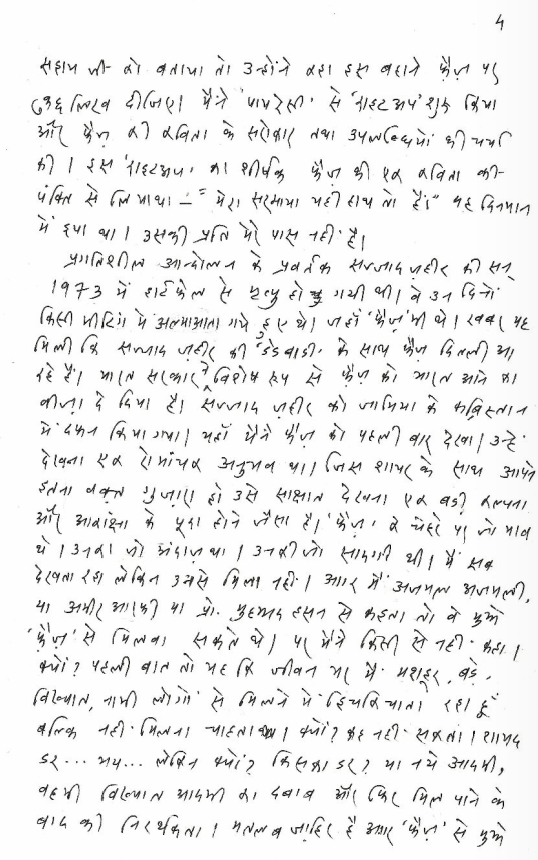 4
सहाय जी को बताया तो उन्होंने कहा इस बहाने फ़ैज़ पर
कुछ लिख दीजिए। मैंने 'पायरेसी' से 'राइटअप' शुरू किया
और फ़ैज़ की कविता के सरोकार तथा उपलब्धियों की चर्चा
की। इस 'राइटअप' का शीर्षक फ़ैज़ की एक कविता की
पंक्ति से लिया था – "मेरा सरमाया यही हाथ तो हैं।" यह दिनमान
में छपा था। उसकी प्रति मेरे पास नहीं है।
प्रगतिशील आन्दोलन के प्रवर्तक सज्जाद ज़हीर की सन्
1973 में हार्टफेल से मृत्यु हो गयी थी। वे उन दिनों
किसी मीटिंग में अल्माआता गये हुए थे। जहाँ 'फ़ैज़' भी थे। ख़बर यह
मिली कि सज्जाद ज़हीर की 'डेडबाडी' के साथ फ़ैज़ दिल्ली आ
रहे हैं। भारत सरकार ने विशेष रूप से फ़ैज़ को भारत आने का
वीज़ा दे दिया है। सज्जाद ज़हीर को जामिया के क़ब्रिस्तान
में दफ़न किया गया। यहाँ मैंने फ़ैज़ को पहली बार देखा। उन्हें
देखना एक रोमांचक अनुभव था। जिस शायर के साथ आपने
इतना वक़्त गुज़ारा हो उसे साक्षात देखना एक बड़ी कल्पना
और आकांक्षा के पूरा होने जैसा है। 'फ़ैज़' के चेहरे पर जो भाव
थे। उनका जो अंदाज़ था। उनकी जो सादगी थी। मैं सब
देखता रहा लेकिन उनसे मिला नहीं। अगर मैं अजमल अजमली,
या अमीर आरफ़ी या प्रो. मुहम्मद हसन से कहता तो वे मुझे
'फ़ैज़' से मिलवा सकते थे। पर मैंने किसी से नहीं कहा।
क्यों? पहली बात तो यह कि जीवन भर मैं मशहूर, बड़े,
विख्यात, नामी लोगों से मिलने में हिचकिचाता रहा हूँ
बल्कि नहीं मिलना चाहता था। क्यों? कह नहीं सकता। शायद
डर... भय... लेकिन क्यों? किसका डर? या नये आदमी,
वह भी विख्यात आदमी का दबाव और फिर मिल पाने के
बाद की निरर्थकता। मतलब ज़ाहिर है अगर 'फ़ैज़' से मुझे